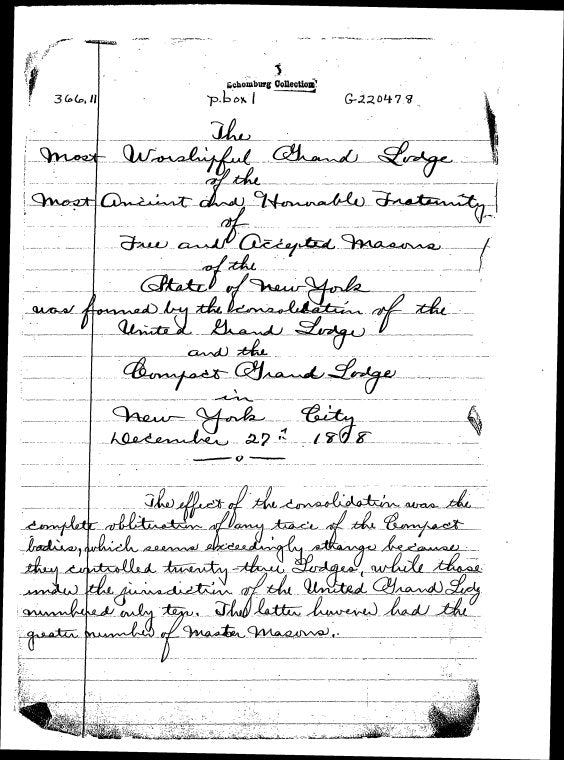 Schomburg Collection
366.11 p.box 1 G-220478
The
Most Worshipful Grand Lodge
of the
Most Ancient and Honorable Fraternity
of
Free and Accepted Masons
of the
State of New York
was formed by the consolidation of the
United Grand Lodge
and the
Compact Grand Lodge
in
New York City
December 27th
The effect of the consolidation was the
complete oblituration of any trace of the Compact
bodies, which seems exceedingly strange because
they controlled twenty-three Lodges, while those
under the jurisdiction of the United Grand Lodg
numbered only ten. The latter however had the
greater number of Master Masons.